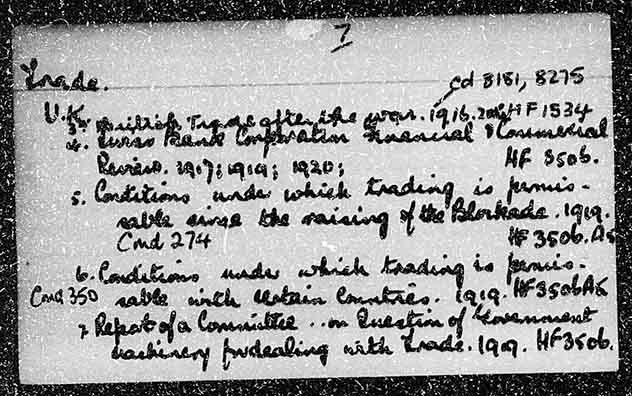 7
Trade.
cd 8181, 8275
U.K.
3. British Trade after the war. 1916. HF 1534
4. Bank Corporation Financial & Commercial
Review. 1917; 1919; 1920; HF 3506.
5. Conditions under which trading is permis-
sable since the raising of the Blockade. 1919.
Cmd 274 HF 3506. A5
6. Conditions under which trading is permis-
Cmd 350 sable with certain Countries. 1919. HF3506A5
7 Report of a Committee .. on Question of Government
machinery for dealing with trade. 1919. HF3506.